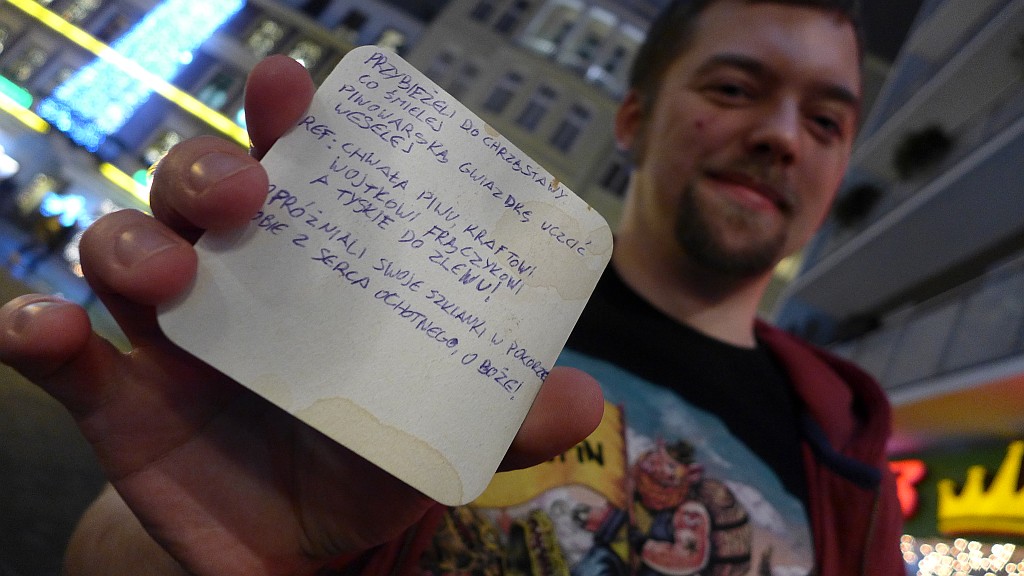 PRZYBIEŻELI DO CHRZĄSTAWY
CO ŚMIELEJ
PIWOWARSKĄ GWIAZDKĘ UCZCIĆ
WESELEJ
REF: CHWAŁA PIWU, KRAFTOWI
WOJTKOWI FRĄCZYKOWI
A TYSKIE DO ZLEWU!
OPRÓŻNIALI SWOJE SZKLANKI W POKORZE
OBIE Z SERCA OCHOTNEGO, O BOŻE!